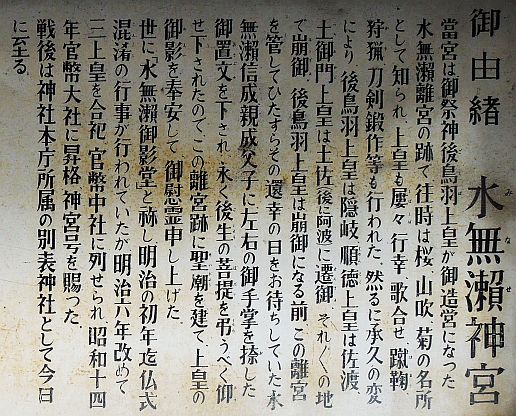 御由緒 水無瀬神宮
みなせ
當宮は御祭神後鳥羽上皇が御造営になった
水無瀬離宮の跡で往時は桜、山吹、菊の名所
として知られ、上皇も屡々行幸、歌合せ、蹴鞠、
狩猟、刀剣鍛作等も行われた。然るに承久の変
により、後鳥羽上皇は隠岐、順徳上皇は佐渡、
土御門上皇は土佐(後に阿波)に遷御、それぞれの地
で崩御、後鳥羽上皇は崩御になる前、この離宮
を管してひたすらその還幸の日をお待ちしていた水
無瀬信成、親成父子に左右の御手掌を捺した
御置文を下され、永く後生の菩提を弔うべく仰
せ下されたのでこの離宮跡に聖廟を建て上皇の
御影を奉安して御慰霊申し上げた。
世に「水無瀬御影堂」と称し明治の初年迄仏式
混淆の行事が行われていたが明治六年改めて
三上皇を合祀、官幣中社に列せられ、昭和十四
年官幣大社に昇格、神宮号を賜った。
戦後は神社本庁所属の別表神社として今日
に至る。